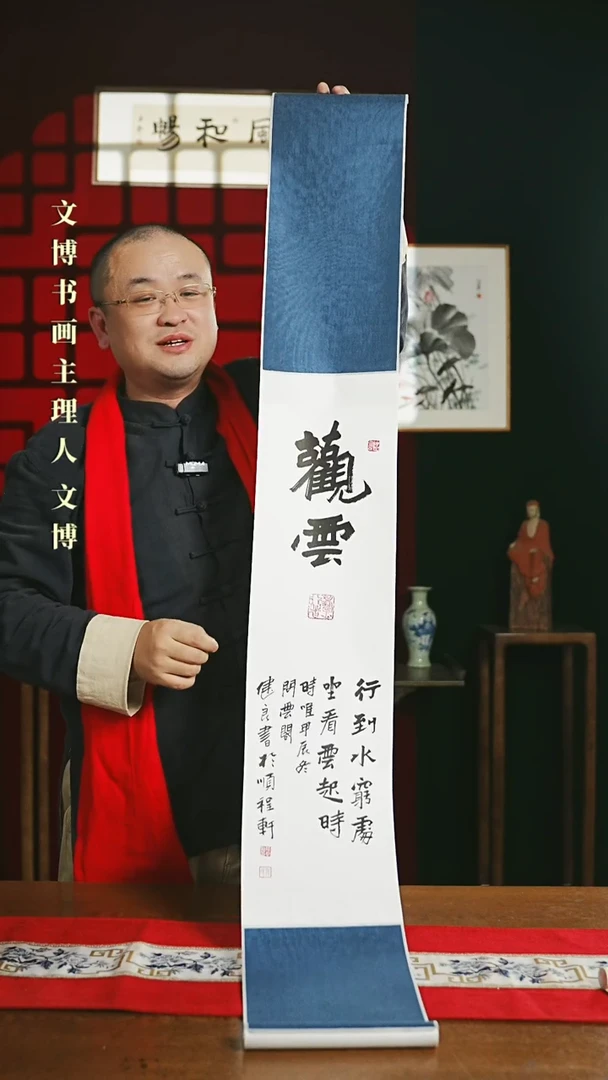 風和暢
文博书画主理人 文博
觀雲
行到水窮處
坐看雲起時
時唯甲辰冬
雲閣
健良書於順程軒